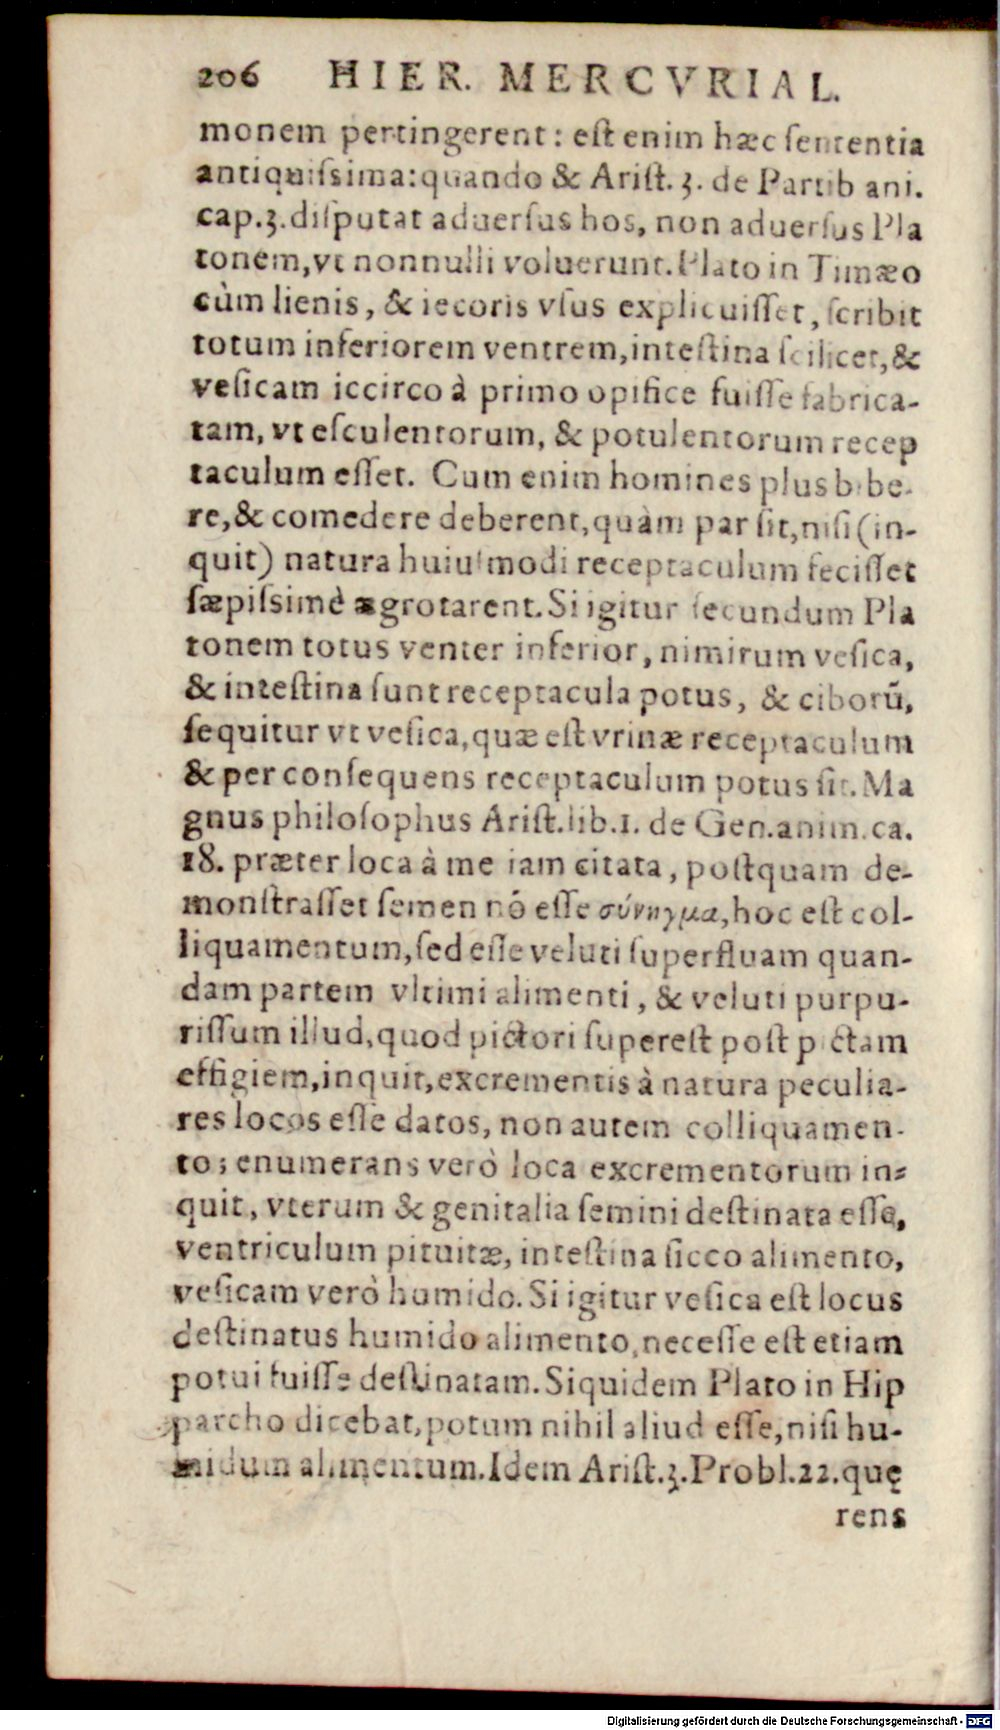 206 HIER. MERCVRIAL.
monem pertingerent: eſt enim hæc ſententia
antiquiſsima: quando & Ariſt. 3. de Partib ani.
cap. 3. diſputat aduerſus hos, non aduerſus Pla
tonem, vt nonnulli voluerunt. Plato in Timæo
cùm lienis, & iecoris vſus explicuiſſet, ſcribit
totum inferiorem ventrem, inteſtina ſcilicet, &
veſicam iccirco à primo opifice fuiſſe fabrica-
tam, vt eſculentorum, & potulentorum recep
taculum eſſet. Cum enim homines plus bibe-
re, & comedere deberent, quàm par ſit, niſi (in-
quit) natura huiuſmodi receptaculum feciſſet
ſæpiſsimè ægrotarent. Si igitur ſecundum Pla
tonem totus venter inferior, nimirum veſica,
& inteſtina ſunt receptacula potus, & ciborū,
ſequitur vt veſica, quæ eſt vrinæ receptaculum
& per conſequens receptaculum potus ſit. Ma
gnus philoſophus Ariſt. lib. 1. de Gen. anim. ca.
18. præter loca à me iam citata, poſtquam de-
monſtraſſet ſemen nō eſſe σύνηγμα, hoc eſt col-
liquamentum, ſed eſſe veluti ſuperfluam quan-
dam partem vltimi alimenti, & veluti purpu-
riſſum illud, quod pictori ſupereſt poſt pictam
effigiem, inquit, excrementis à natura peculia-
res locos eſſe datos, non autem colliquamen-
to; enumerans verò loca excrementorum in-
quit, vterum & genitalia ſemini deſtinata eſſe,
ventriculum pituitæ, inteſtina ſicco alimento,
veſicam verò humido. Si igitur veſica eſt locus
deſtinatus humido alimento, neceſſe eſt etiam
potui fuiſſe deſtinatam. Siquidem Plato in Hip
parcho dicebat, potum nihil aliud eſſe, niſi hu-
midum alimentum. Idem Ariſt. 3. Probl. 22. quę
rens
Digitalisierung gefördert durch die Deutsche Forschungsgemeinschaft - DFG